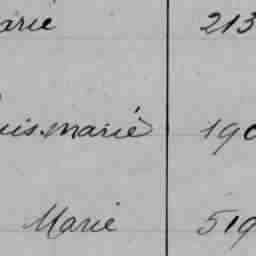 arie 213
uis marie 190
Marie 519